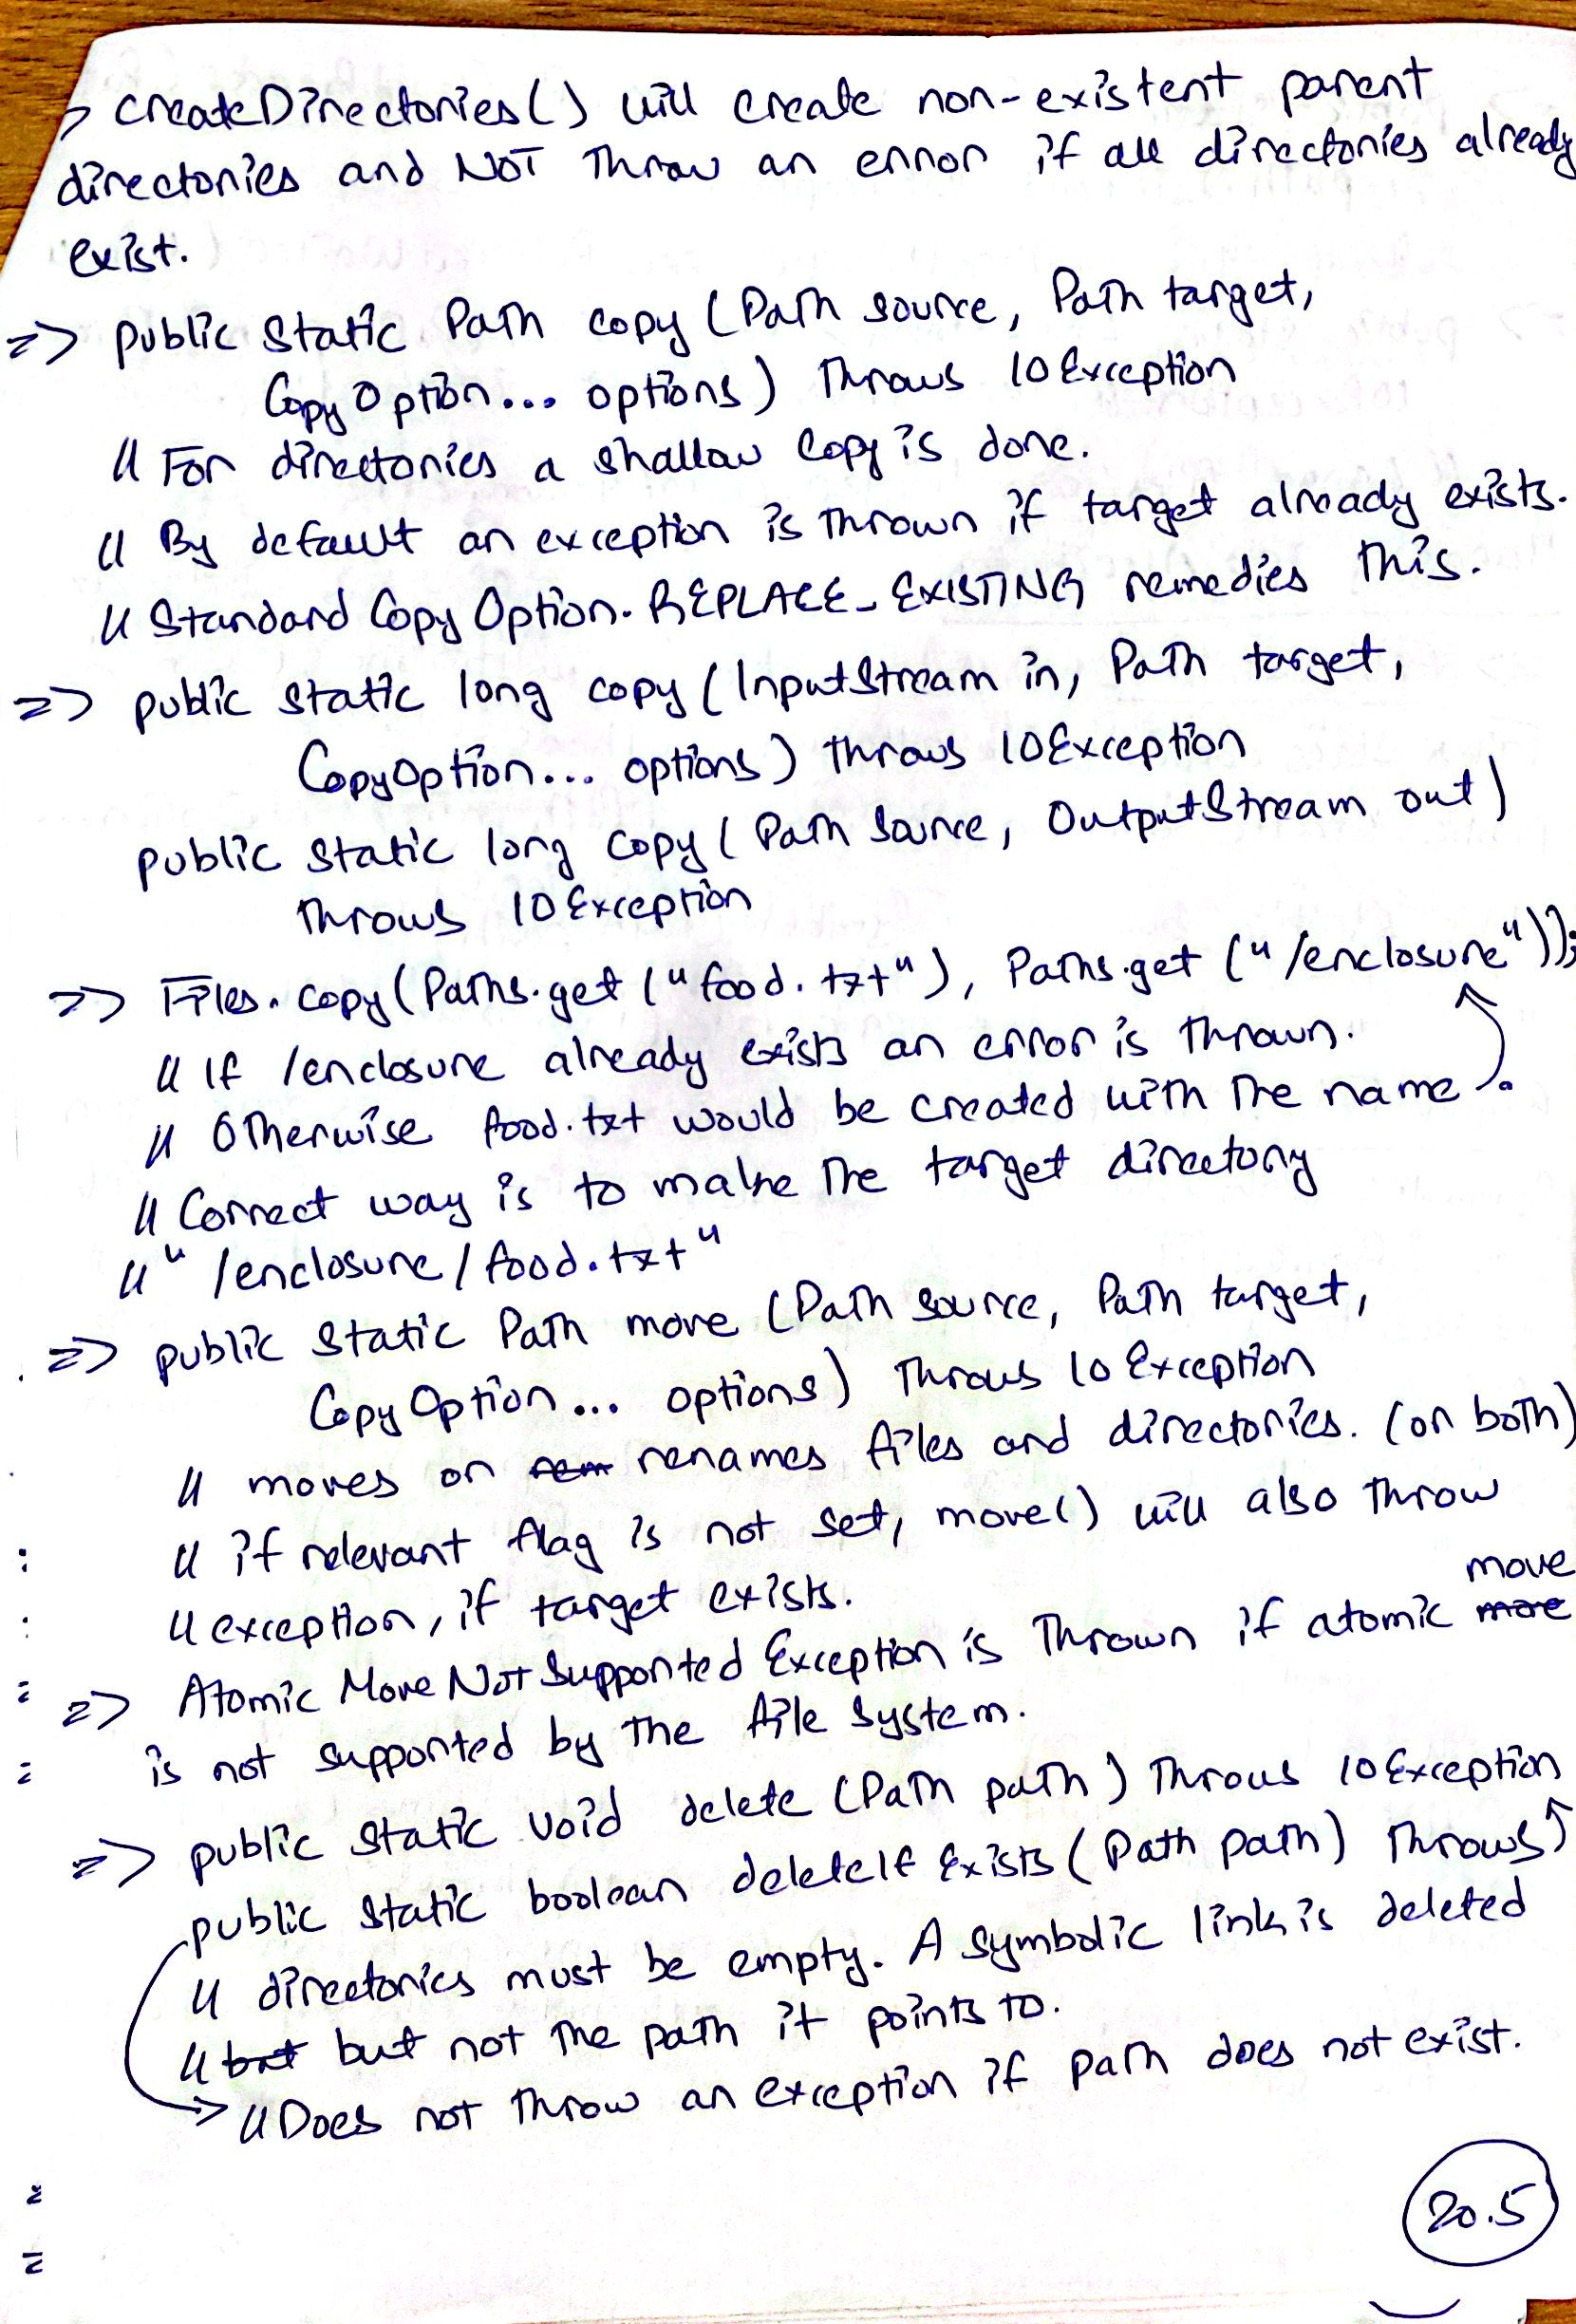 > createDirectories() will create non-existent parent
directories and NOT throw an error if all directories already
exist.
=> public static Path copy (Path source, Path target,
CopyOption... options) throws IOException
// For directories a shallow copy is done.
// By default an exception is thrown if target already exists.
// StandardCopyOption.REPLACE_EXISTING remedies this.
=> public static long copy (InputStream in, Path target,
CopyOption... options) throws IOException
public static long copy (Path source, OutputStream out)
throws IOException
=> Files.copy(Paths.get("food.txt"), Paths.get("/enclosure"));
// If /enclosure already exists an error is thrown.
// Otherwise food.txt would be created with the name .
// Correct way is to make the target directory
// "/enclosure/food.txt"
=> public static Path move (Path source, Path target,
CopyOption... options) throws IOException
// moves or renames files and directories. (or both)
// if relevant flag is not set, move() will also throw
// exception, if target exists.
=> AtomicMoveNotSupportedException is thrown if atomic move
is not supported by the file system.
=> public static void delete (Path path) throws IOException
public static boolean deleteIfExists (Path path) throws ↑
// directories must be empty. A symbolic link is deleted
// but not the path it points to.
-> // Does not throw an exception if path does not exist.
20.5